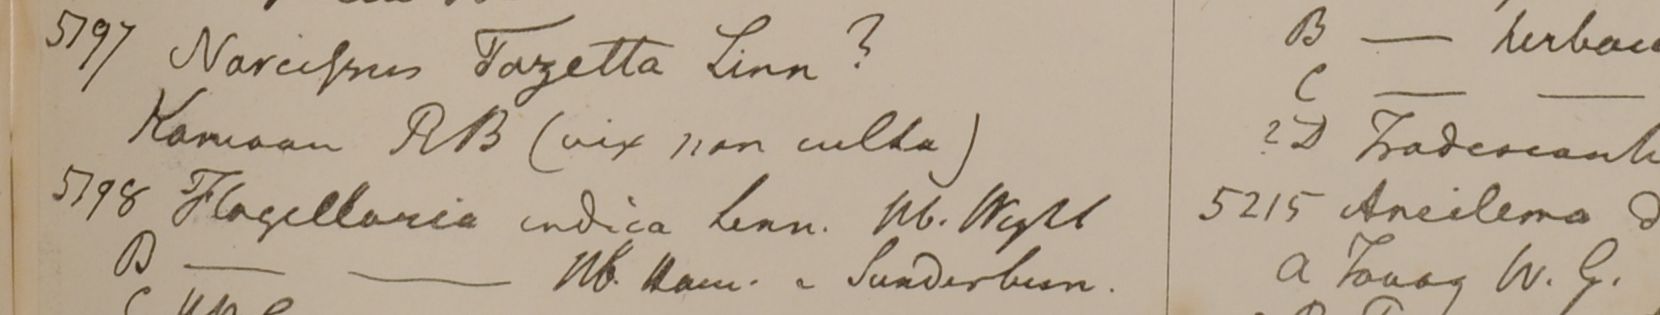 5197 Narcissus Tazetta Linn?
Kamaon RB (vix non culta)
5198 Flagellaria indica Linn. Hb. Wight
B — — Hb. Ham. e Sunderbun.
B — herbac
C — —
?D Tradescanti
5215 Aneilema
a Tavoy W. G.